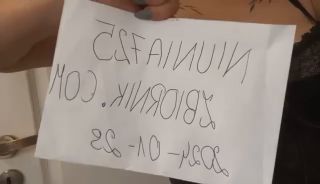 NIUNIA725
ZBIORNIK.COM
2024-01-28